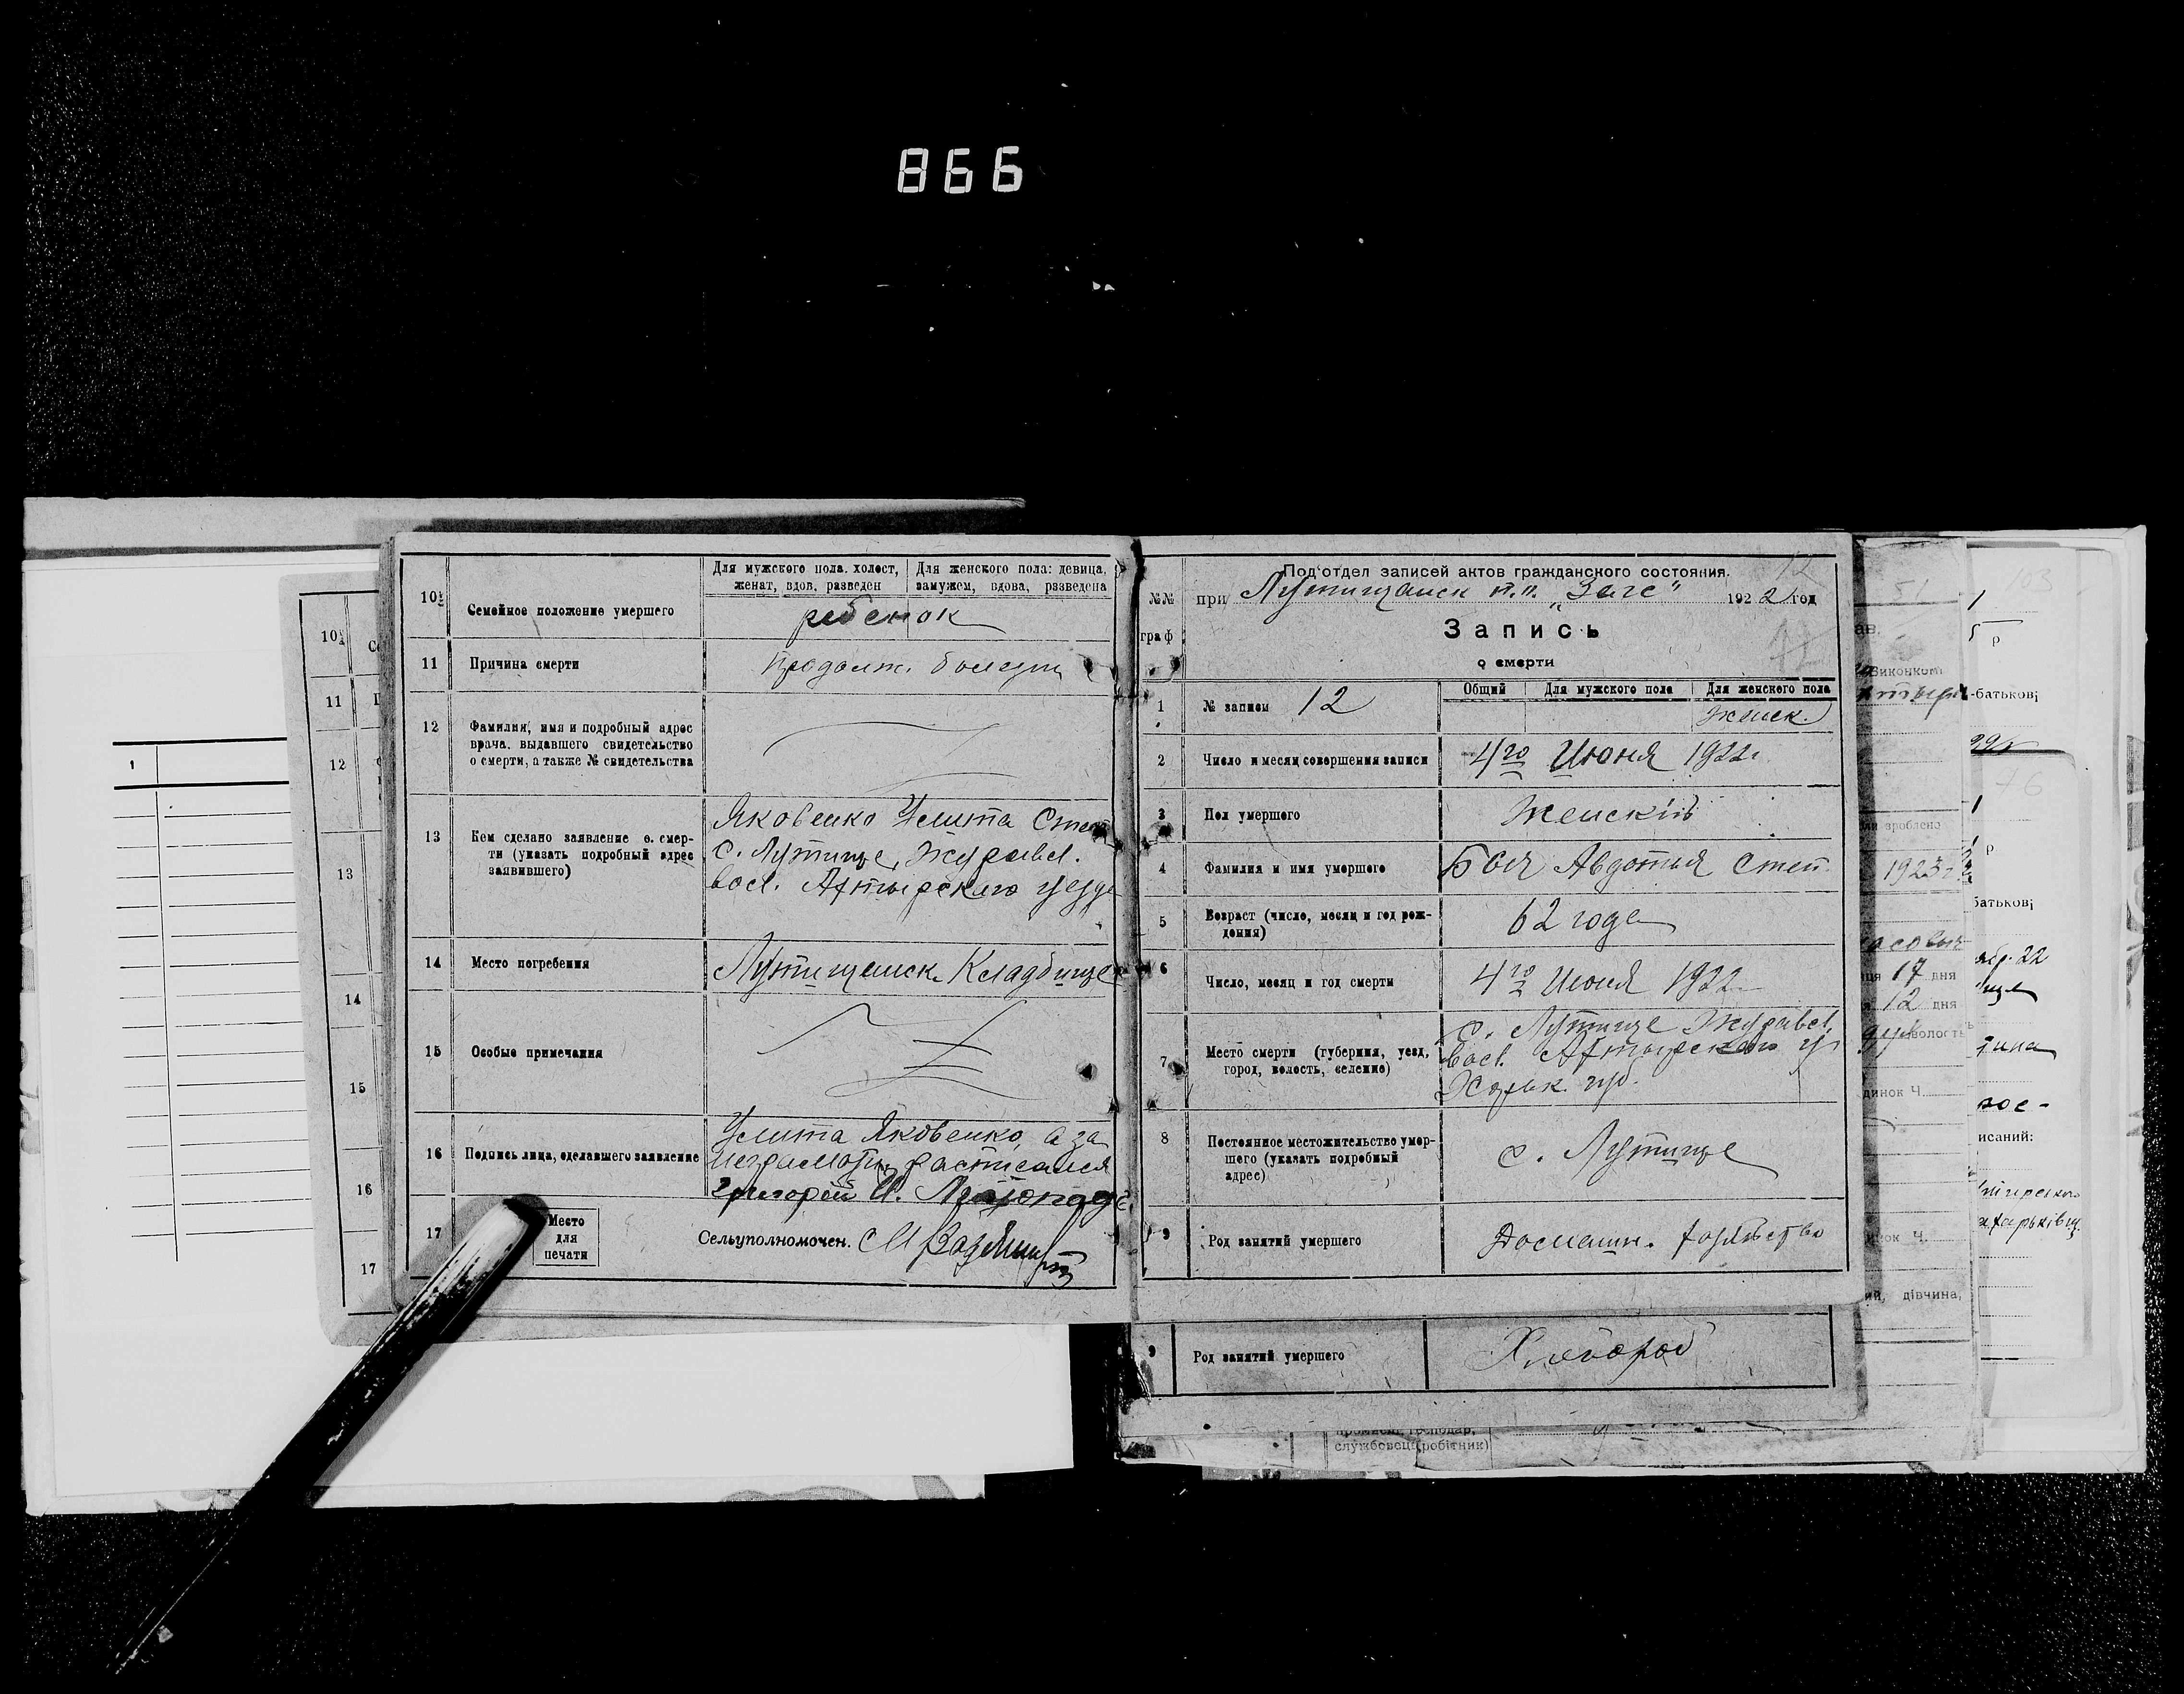 866
10½
Семейное положение умершего
Для мужского пола. холост, женат, вдов, разведен
Для женского пола: девица, замужем, вдова, разведена
ребенок
11
Причина смерти
продолж. болезни
12
Фамилия, имя и подробный адрес
врача, выдавшего свидетельство
о смерти, а также № свидетельства
13
Кем сделано заявление о смер-
ти (указать подробный адрес
заявившего)
Яковенко Улита Степ
с. Лутище, Журавл.
вол. Ахтырского уезда
14
Место погребения
Лутищанск. Кладбище
15
Особые примечания
16
Подпись лица, сделавшего заявление
Улита Яковенко, а за
неграмотн. расписался
Григорий И.
17
Место
для
печати
Сельуполномочен.
Под‘отдел записей актов гражданского состояния.
12
№№
граф
при Лутищанск п.п. „Загс“ 1922 год
Запись
о смерти
12
1
№ записи 12
Общий
Для мужского пола
Для женского пола
Женск.
2
Число и месяц совершения записи
4го Июня 1922г.
3
Пол умершего
Женскій
4
Фамилия и имя умершего
Бои Авдотия Степ.
5
Возраст (число, месяц и год рож-
дения)
62 года
6
Число, месяц и год смерти
4го Июня 1922
7
Место смерти (губерния, уезд,
город, волость, селение)
с. Лутище Журавл.
вол. Ахтырского у
Харьк. губ.
8
Постоянное местожительство умер-
шего (указать подробный
адрес)
с. Лутище
9
Род занятий умершего
Домашн.
9
Род занятий умершего
Хлебороб
службовець, робітник)
10½
11
12
13
14
15
16
17
1
51
Виконком
зроблено
1923 г.
17 дня
12 дня
волость
динок Ч.
нок Ч.
ий, дівчина,
р
-батькові
76
р
батькові
22
исаний: